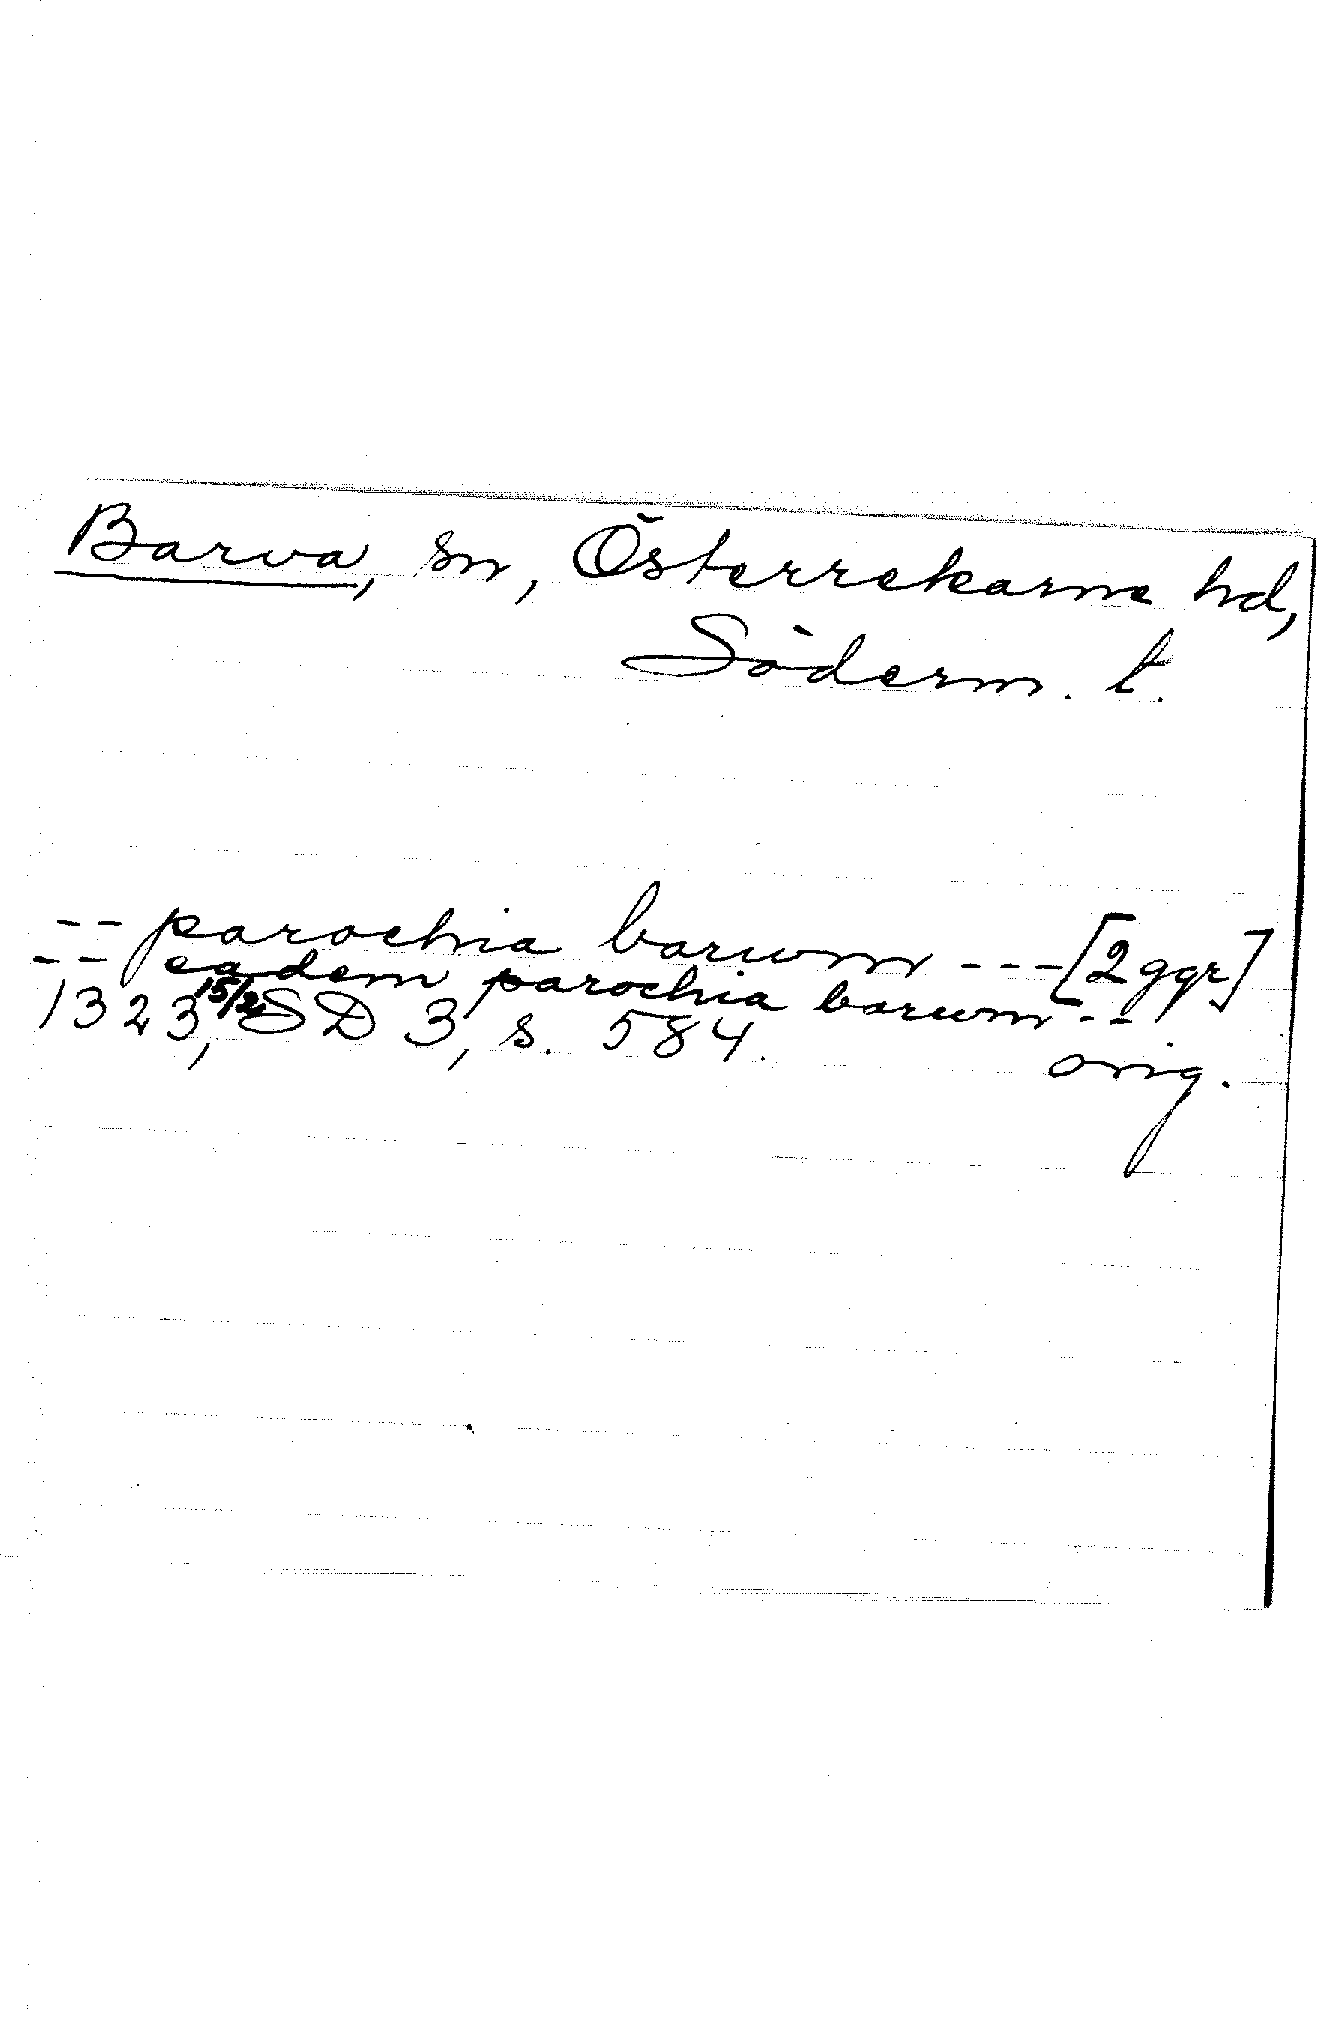 Barva, sn, Österrekarne hd,
Söderm. l.
-- parochia barum --- [2 ggr]
-- eadem parochia barum --
1323 15/2, SD 3, s. 584. orig.